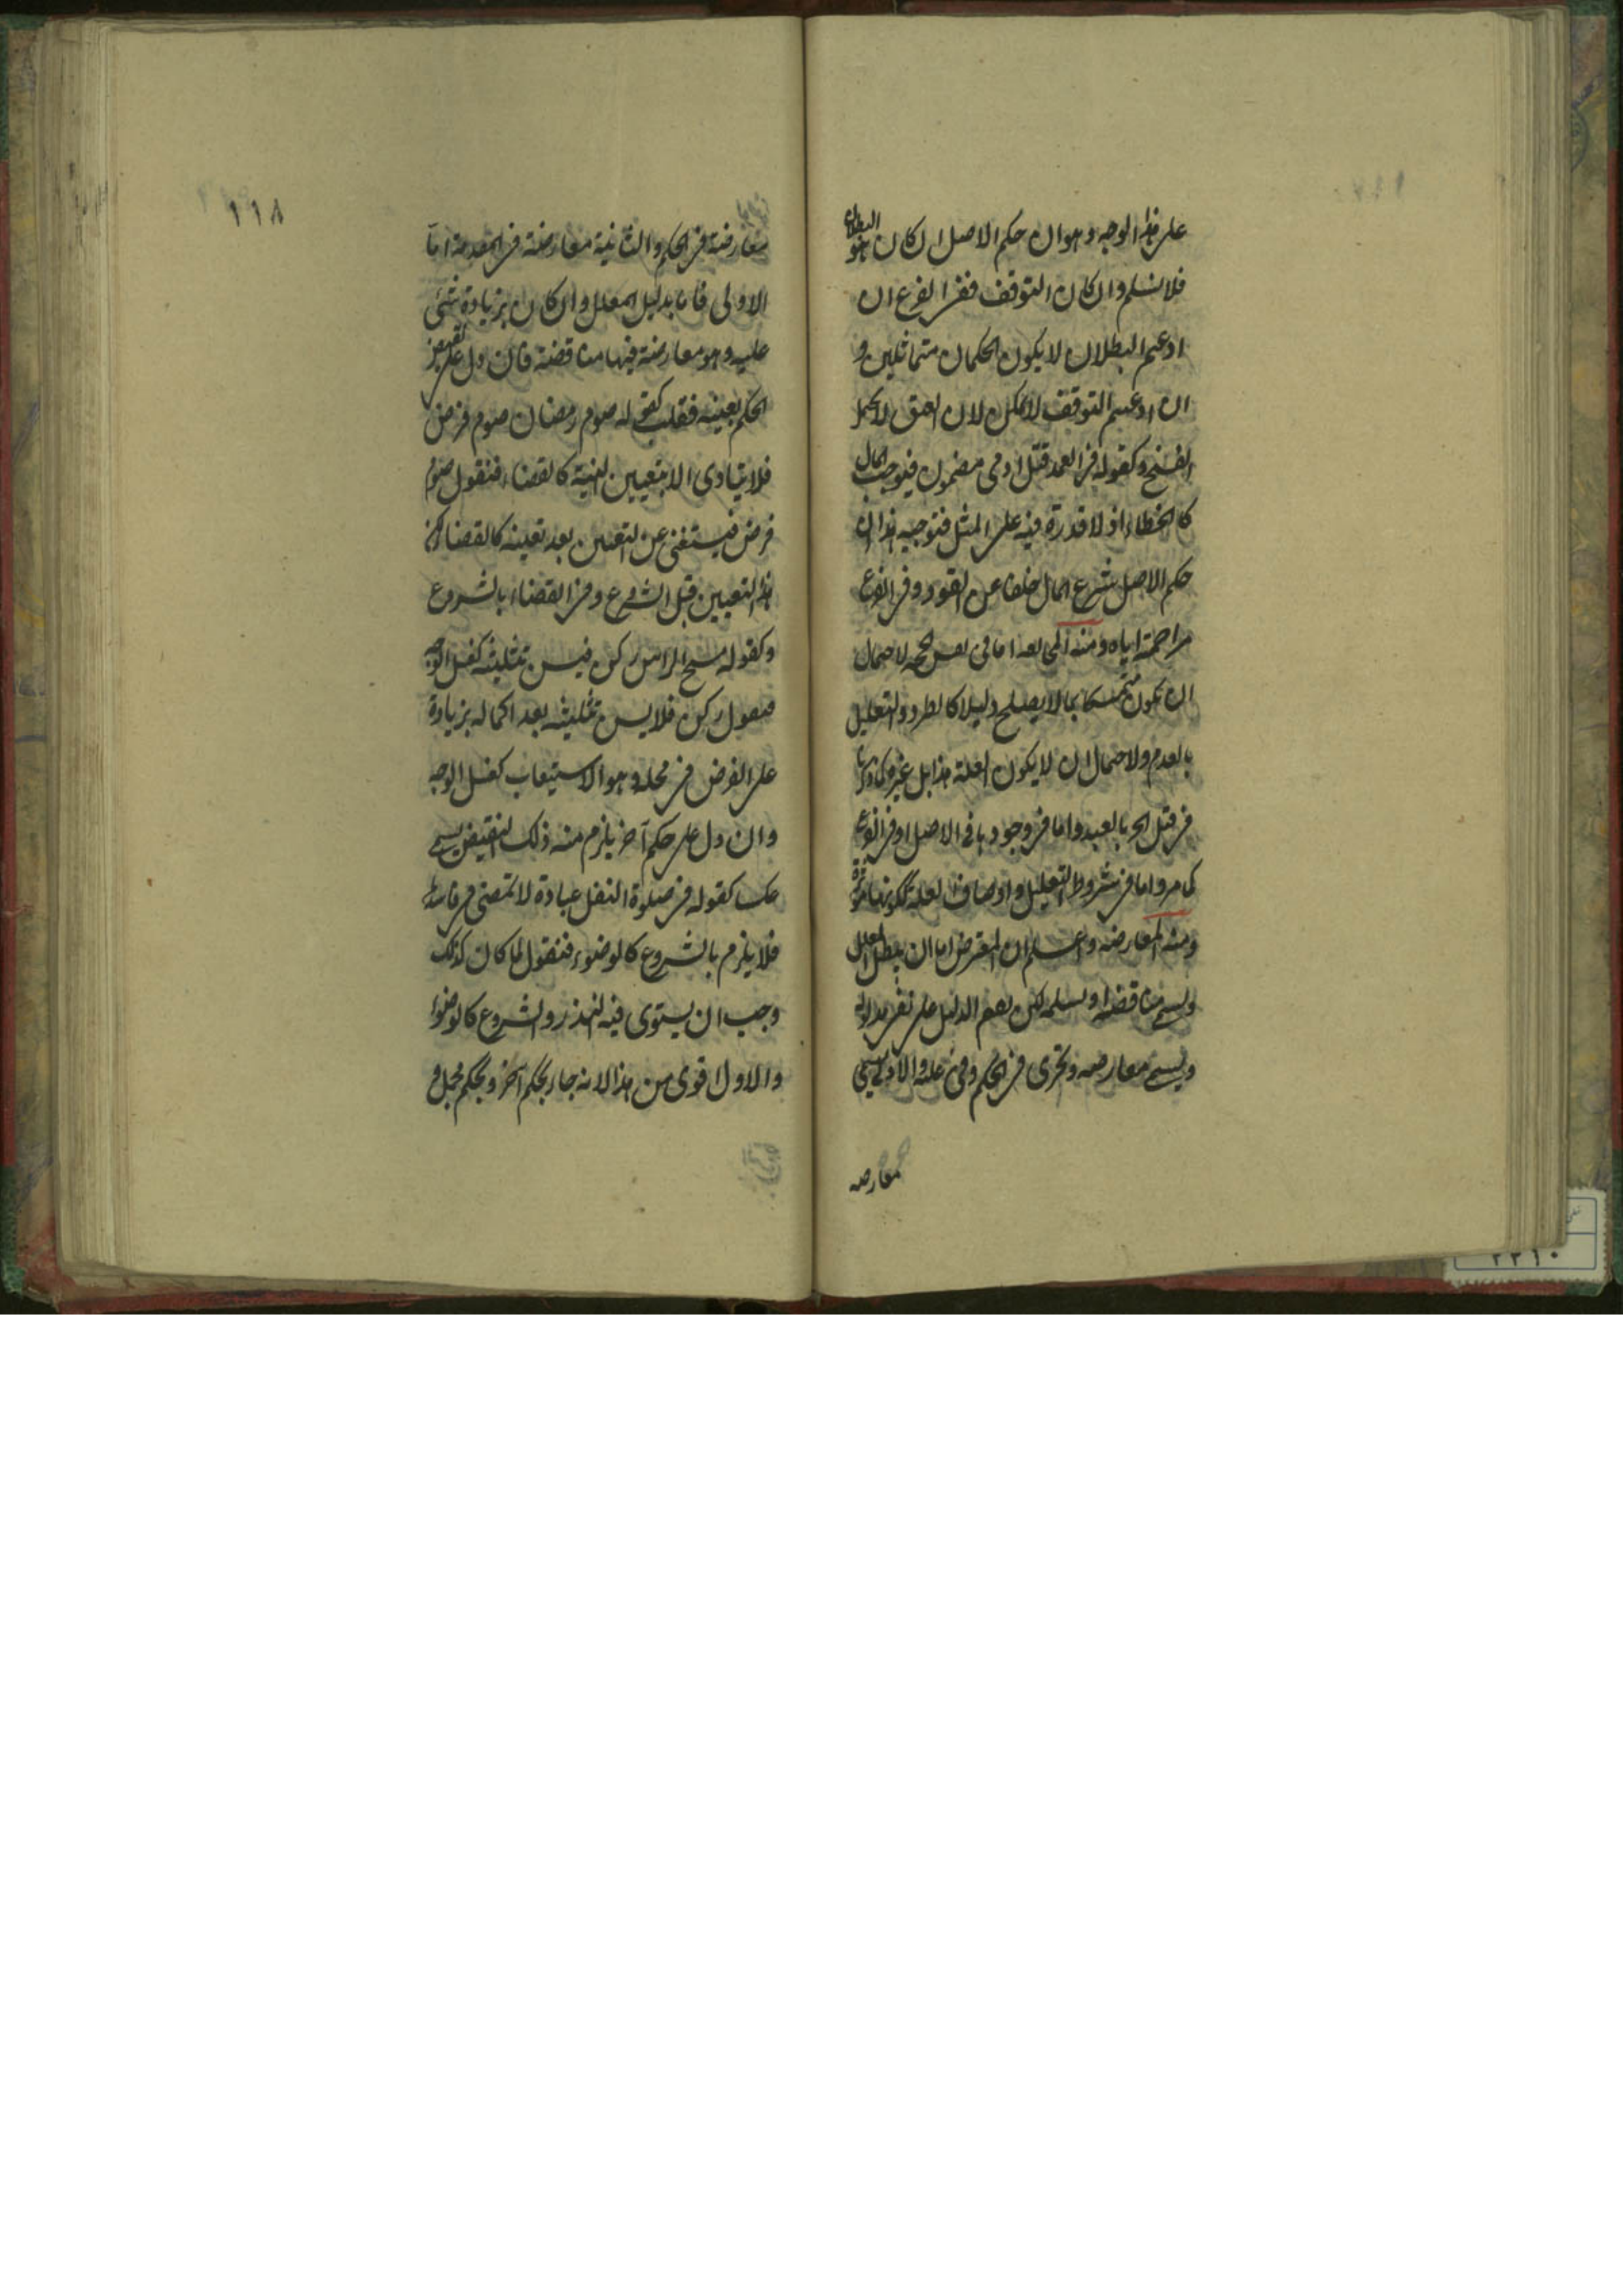 على هذا الوجه وهو ان حكم الاصل ان كان هو البطلان
فلا نسلم وان كان التوقف ففى الفرع ان
ادعيتم البطلان لا يكون الحكمان متماثلين و
ان ادعيتم التوقف لا يمكن لان العتق لا يحتمل
الفسخ وكقوله فى العمد قتل ادمى مضمون فيوجب المال
كالخطاء اذ لا قدرة فيه على المثل فتوجيه هذا ان
حكم الاصل شرع المال خلفا عن القود وفى الفرع
مزاحمة اياه ومنه المى نعه اما فى نفس الحجة لاحتمال
ان يكون متمسكا بما لا يصلح دليلا كالطرد والتعليل
بالعدم ولاحتمال ان لا يكون العلة هذا بل غيره كما ذكرنا
فى قتل الحر بالعبد واما فى وجودها فى الاصل او فى الفرع
كما مر واما فى شروط التعليل واوصاف العلة ككونها مؤثرة
ومنه المعارضه واعلم ان المعترض اما ان يبطل المعلل
ويسمى مناقضة او يسلمه لكن يقيم الدليل على نفى مدلوله
ويسمى معارضه وتجرى فى الحكم وفى علته والاولى يسمى
معارضه
١١٨
معارضة فى الحكم والثانية معارضة فى المقدمة اما
الاولى فاما بدليل المعلل وان كان بزيادة شئى
عليه وهو معارضة فيها مناقضة فان دل على نقيض
الحكم بعينه فقلب كقوله صوم رمضان صوم فرض
فلا يتادى الا بتعيين النية كالقضاء فنقول صوم
فرض فيستغنى عن التعيين بعد تعينه كالقضا لكن
هذا التعيين قبل الشروع وفى القضاء بالشروع
وكقوله مسح الراس ركن فيسن تثليثه كغسل الوجه
فنقول ركن فلا يسن تثليثه بعد اكماله بزيادة
على الفرض فى محله وهو الاستيعاب كغسل الوجه
وان دل على حكم آخر يلزم منه ذلك النقيض يسمى
عكسا كقوله فى صلوة النفل عبادة لا تمضى فى فاسدها
فلا يلزم بالشروع كالوضوء فنقول لما كان كذلك
وجب ان يستوى فيه النذر والشروع كالوضوا
والاول اقوى من هذا لانه جاء بحكم آخر وبحكم مجمل و
٢٢١٠